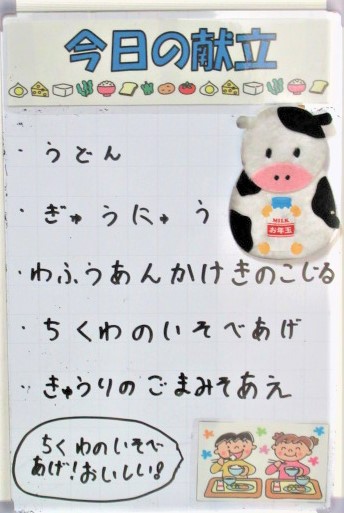 今日の献立
・うどん
MILK
お年玉
・ぎゅうにゅう
・わふうあんかけきのこじる
・ちくわのいそべあげ
・きゅうりのごまみそあえ
ちくわのいそべ
あげ!おいしい!